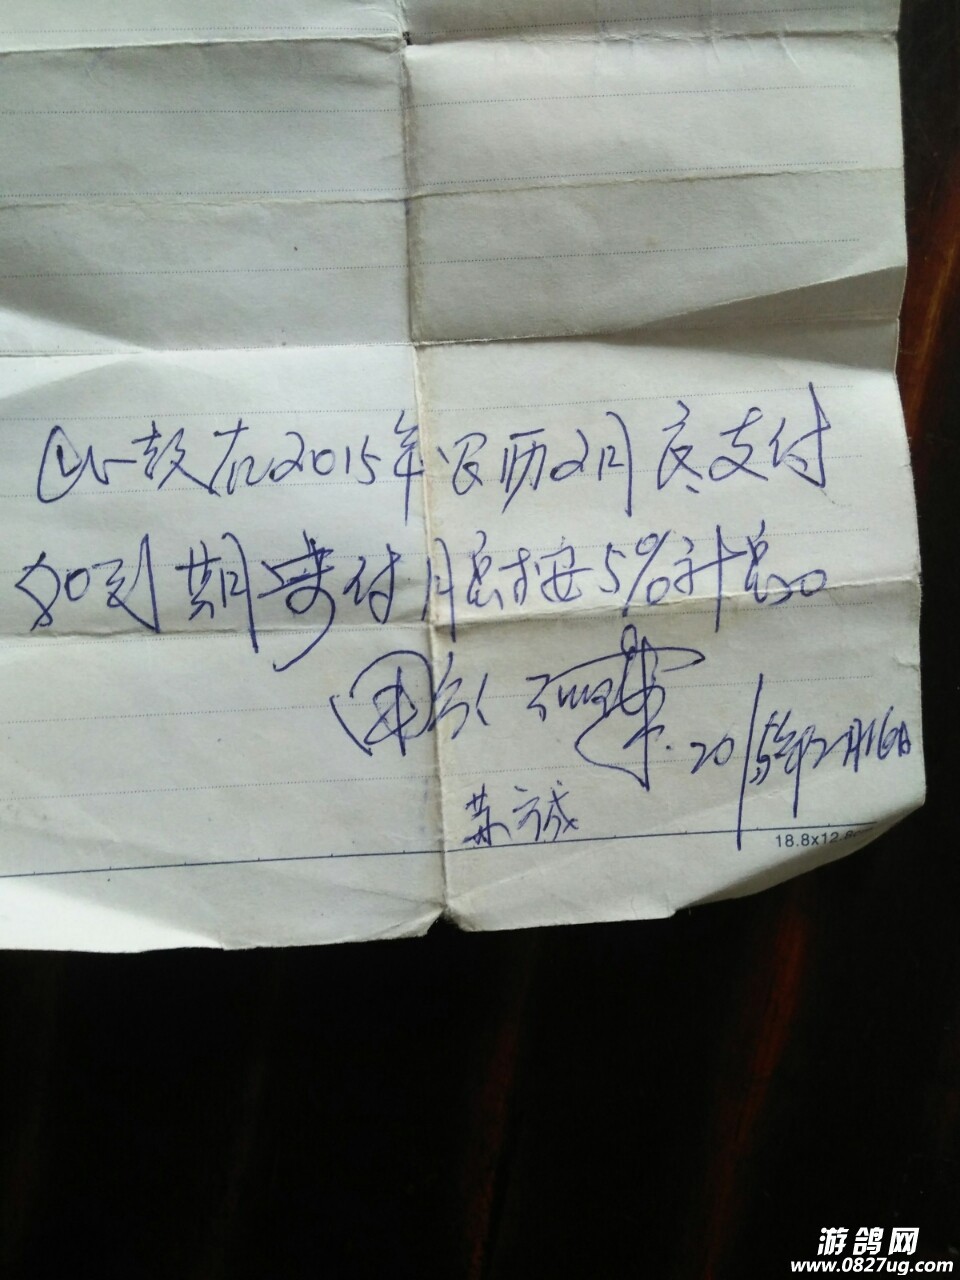 此款在2015年农历2月底支付
如到期未付月息按5%计息。
2015年2月16日
苏
18.8x12.8
游鸽网
www.0827ug.com